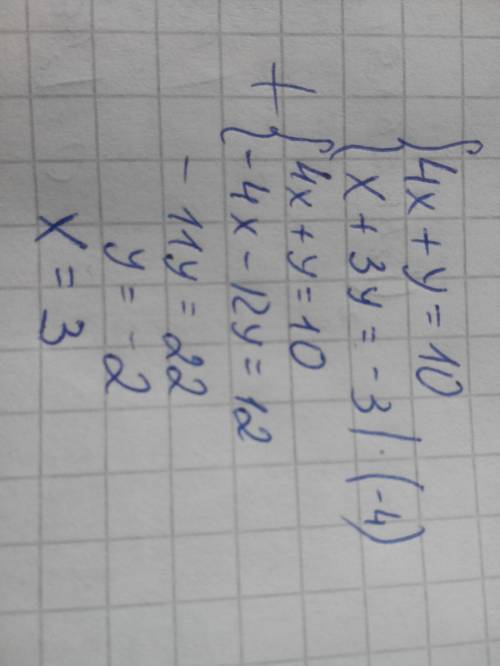 { 4x + y = 10
{ x + 3y = -3 | · (-4)
+ { 4x + y = 10
{ -4x - 12y = 12
- 11y = 22
y = -2
x = 3